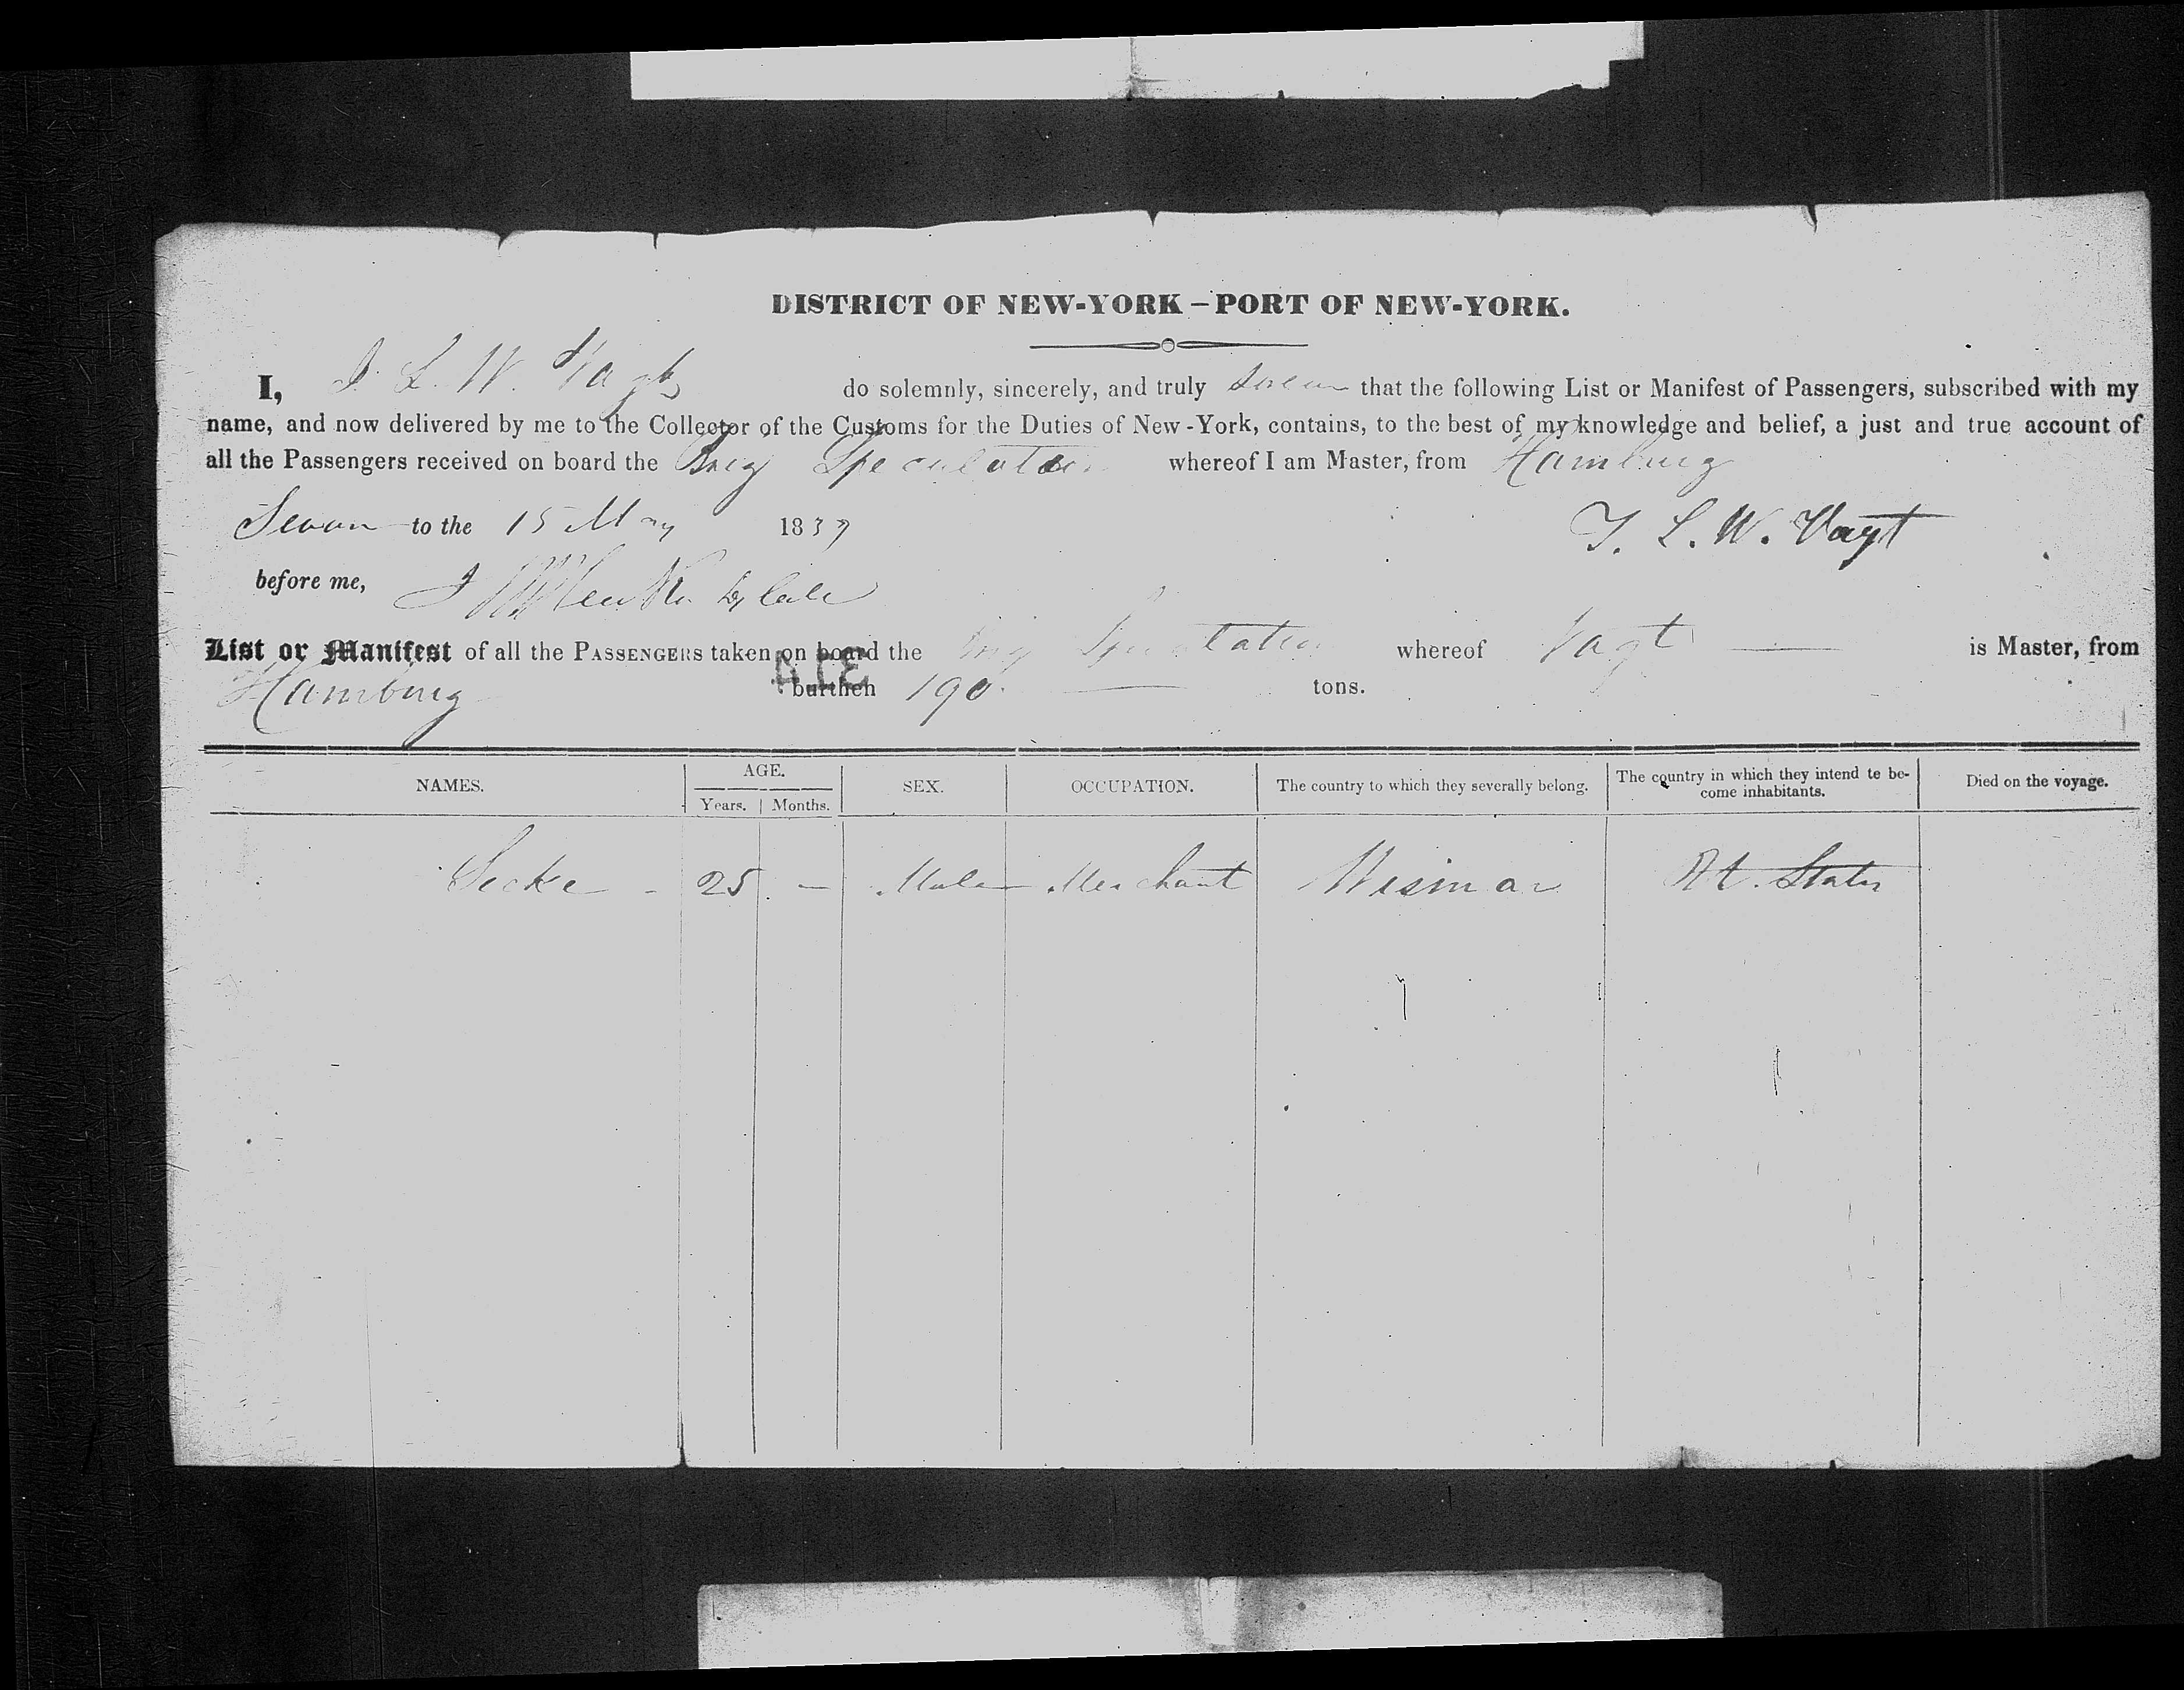 DISTRICT OF NEW-YORK – PORT OF NEW-YORK.
I, J. L. W. Vagt do solemnly, sincerely, and truly swear that the following List or Manifest of Passengers, subscribed with my
name, and now delivered by me to the Collector of the Customs for the Duties of New-York, contains, to the best of my knowledge and belief, a just and true account of
all the Passengers received on board the Brig Speculation whereof I am Master, from Hamburg
Sworn to the 15 May 1839 J. L. W. Vagt
before me,
List or Manifest of all the PASSENGERS taken on board the Brig Speculation whereof Vagt is Master, from
Hamburg burthen 190 tons.
NAMES. AGE. Years. Months. SEX. OCCUPATION. The country to which they severally belong. The country in which they intend te be-
come inhabitants. Died on the voyage.
25 — Male Merchant Wismar Ut. States